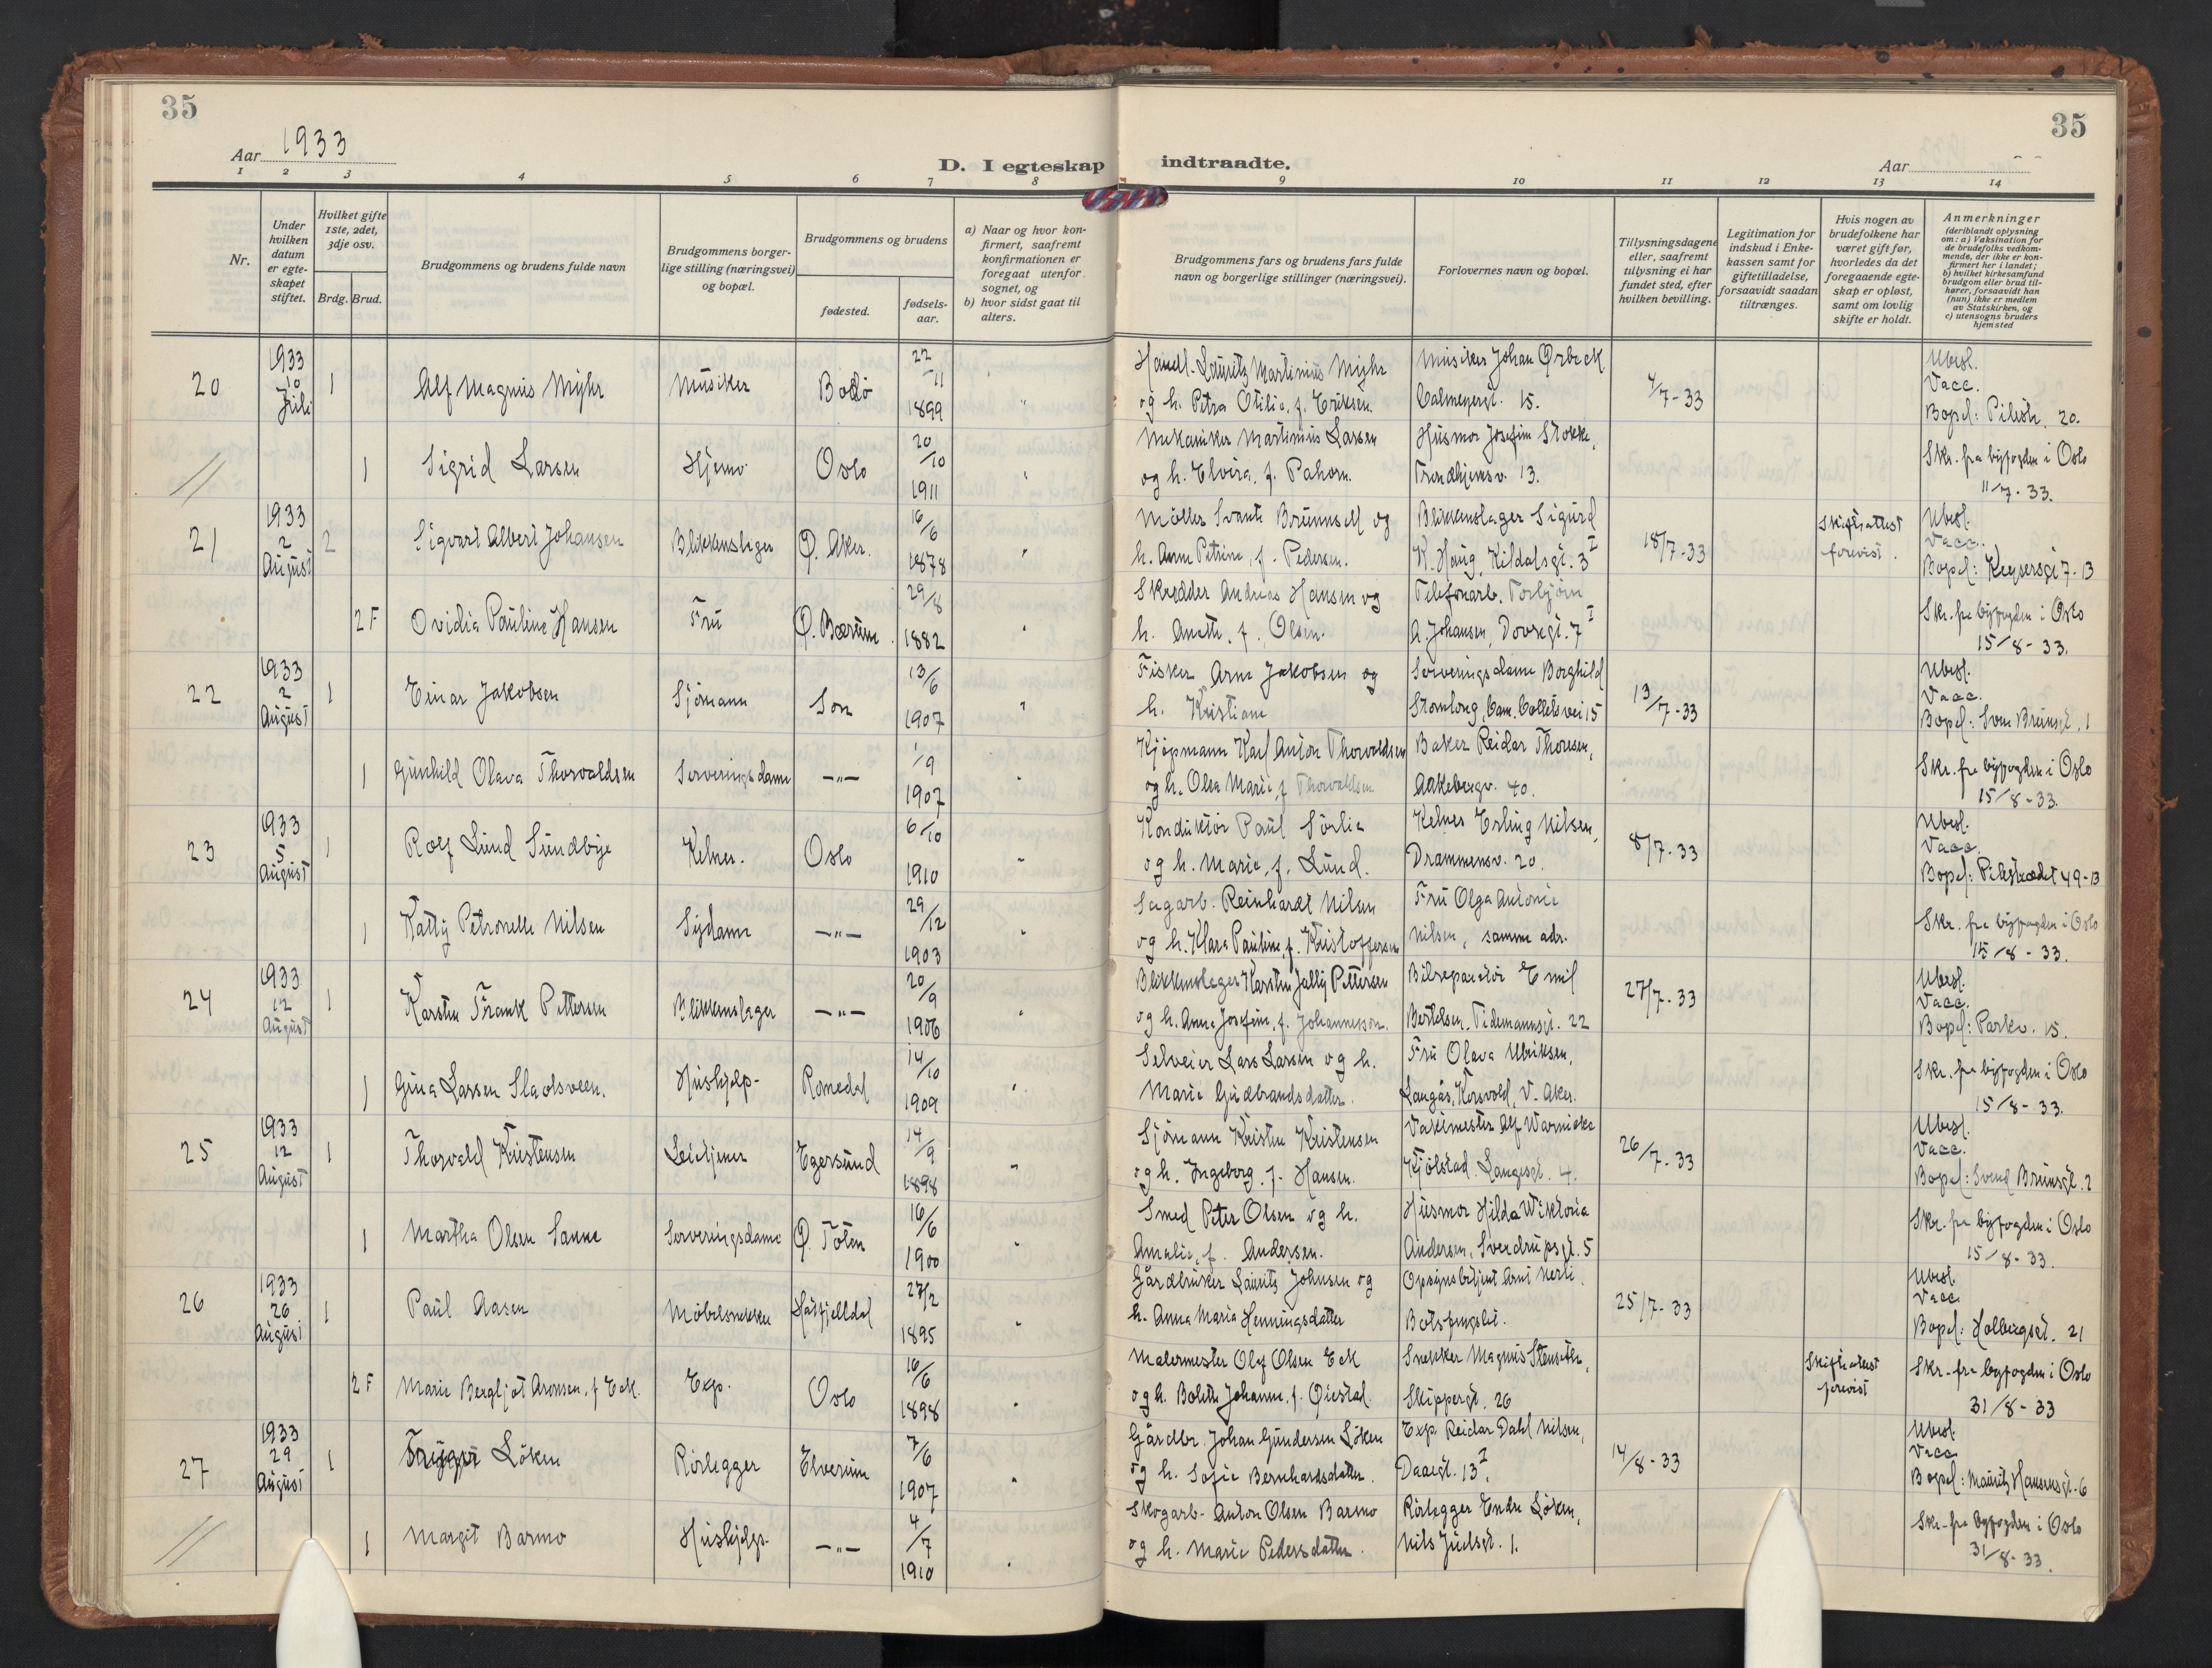 35
35
Aar 1933
D. I egteskap indtraadte.
Aar
1 2 3 4 5 6 7 8 9 10 11 12 13 14
Nr.
Under hvilken datum er egte-skapet stiftet.
Hvilket gifte 1ste, 2det, 3dje osv.
Brdg. Brud.
Brudgommens og brudens fulde navn
Brudgommens borger-lige stilling (næringsvei) og bopæl.
Brudgommens og brudens
fødested.
fødsels-aar.
a) Naar og hvor kon-firmert, saafremt konfirmationen er foregaat utenfor sognet, og
b) hvor sidst gaat til alters.
Brudgommens fars og brudens fars fulde navn og borgerlige stillinger (næringsvei).
Forlovernes navn og bopæl.
Tillysningsdagene eller, saafremt tillysning ei har fundet sted, efter hvilken bevilling.
Legitimation for indskud i Enke-kassen samt for giftetilladelse, forsaavidt saadan tiltrænges.
Hvis nogen av brudefolkene har været gift før, hvorledes da det foregaaende egte-skap er opløst, samt om lovlig skifte er holdt.
Anmerkninger (deriblandt oplysning om: a) Vaksination for de brudefolks vedkom-mende, der ikke er kon-firmert her i landet; b) hvilket kirkesamfund brudgom eller brud til-hører, forsaavidt han (hun) ikke er medlem av Statskirken, og c) utensogns bruders hjemsted
20 1933 10 Juli 1 Alf Magnus Myhr Musiker Bodø 22/11 1899 " Handl. Lauritz Martinius Myhr og h. Petra Otilie, f. Eriksen. Musiker Johan Ørbeck Calmeyergt. 15. 4/7-33 Ubesl. Vacc. Bopel: Pilestr. 20.
// 1 Sigrid Larsen Hjemv. Oslo 20/10 1911 " Mekaniker Martinius Larsen og h. Elvira, f. Pahorn. Husmor Josefine Stokke, Trondhjemsv. 13. Skr. fra byfogden i Oslo 11/7-33.
21 1933 2 August 2 Sigvart Albert Johansen Blikkenslager Ø. Aker. 16/6 1878 " Møller Svante Brunnsell og h. Anne Petrine, f. Pedersen. Blikkenslager Sigurd K. Haug, Kildalsgt. 3 I 18/7-33 Skifteattest forevist. Ubesl. Vacc. Bopel: Keysersgt 7-B
2F Ovidia Pauline Hansen Fru Ø. Bærum. 29/8 1882 " Skredder Andreas Hansen og h. Anette, f. Olsen. Telefonarb. Torbjørn A. Johansen, Dovregt. 7 I Skr. fra byfogden i Oslo 15/8-33.
22 1933 2 August 1 Einar Jakobsen Sjømann Son 13/6 1907 " Fisker Arne Jakobsen og h. Kristiane Serveringsdame Borghild Stomlong, Cam. Collets vei 15 13/7-33 Ubesl. Vacc. Bopel: Sven Brunsgt. 1
1 Gunhild Olava Thorvaldsen Serveringsdame -"- 1/9 1907 " Kjøpmann Karl Anton Thorvaldsen og h. Olea Marie, f Thorvaldsen Baker Reidar Thoresen, Aakebergv. 40. Skr. fra byfogden i Oslo 15/8-33.
23 1933 5 August 1 Rolf Lund Sundbye Kelner. Oslo 6/10 1910 " Konduktør Paul Sørlie og h. Marie, f. Lund. Kelner Erling Nilsen, Drammensv. 20. 8/7-33 Ubesl. Vacc. Bopel: Pilestrædet 49-B
1 Katty Petronelle Nilsen Sydame -"- 29/12 1903 " Sagarb. Reinhardt Nilsen og h. Klara Pauline, f. Kristoffersen Fru Olga Antonie Nilsen, samme adr. Skr. fra byfogden i Oslo 15/8-33.
24 1933 12 August 1 Karsten Frank Pettersen Blikkenslager -"- 20/9 1906 " Blikkenslager Karsten Jally Pettersen og h. Anna Josefine, f. Johannesson. Bilreparatør Emil Bertelsen, Tidemannsgt. 22 27/7-33 Ubesl. Vacc. Bopel: Parkv. 15.
1 Gina Larsen Sladsveen. Hushjelp- Romedal 14/10 1909 " Selveier Lars Larsen og h. Marie Gudbrandsdatter. Fru Olava Ulriksen, Langås, Korsvold, V. Aker. Skr. fra byfogden i Oslo 15/8-33.
25 1933 12 August 1 Thorvald Kristensen Leietjener Egersund 14/9 1898 " Sjømann Kristen Kristensen og h. Ingeborg, f. Hansen. Vaktmester Alf Warnicke Kjølstad Langesgt. 4. 26/7-33 Ubesl. Vacc. Bopel: Svend Brunsgt. 2
1 Martha Olsen Sanne Serveringsdame Ø. Toten 16/6 1900 " Smed Peter Olsen og h. Amalie, f. Andersen. Husmor Hilda Wiktoria Andersen, Sverdrupsgt. 5 Skr. fra byfogden i Oslo 15/8-33.
26 1933 26 August 1 Paul Aasen Møbelsnekker Hatfjelldal 27/2 1895 " Gårdbruker Lauritz Johnsen og h. Anna Maria Henningsdatter Opsynsbetjent Arnt Nerli, Botsfengslet. 25/7-33 Ubesl. Vacc. Bopel: Holbergsgt. 21
2F Marie Bergljot Aronsen, f Eck. Exp. Oslo 16/6 1898 " Malermester Olaf Olsen Eck og h. Bolette Johanne, f. Øiestad. Snekker Magnus Stenseth, Skippergt. 26 Skifteattest forevist Skr. fra byfogden i Oslo 31/8-33
27 1933 29 August 1 Trygve Løken Rørlegger Elverum 7/6 1907 " Gårdbr. Johan Gundersen Løken og h. Sofie Bernhardsdatter. Exp. Reidar Dahl Nilsen, Daaegt. 13 I. 14/8-33 Ubesl. Vacc Bopel: Mauritz Hansensgt. 6
// 1 Margit Barmo Hushjelp. -"- 4/7 1910 " Skogarb. Anton Olsen Barmo og h. Marie Pedersdatter. Rørlegger Endre Løken, Nils Juelsgt. 1. Skr. fra byfogden i Oslo 31/8-33.